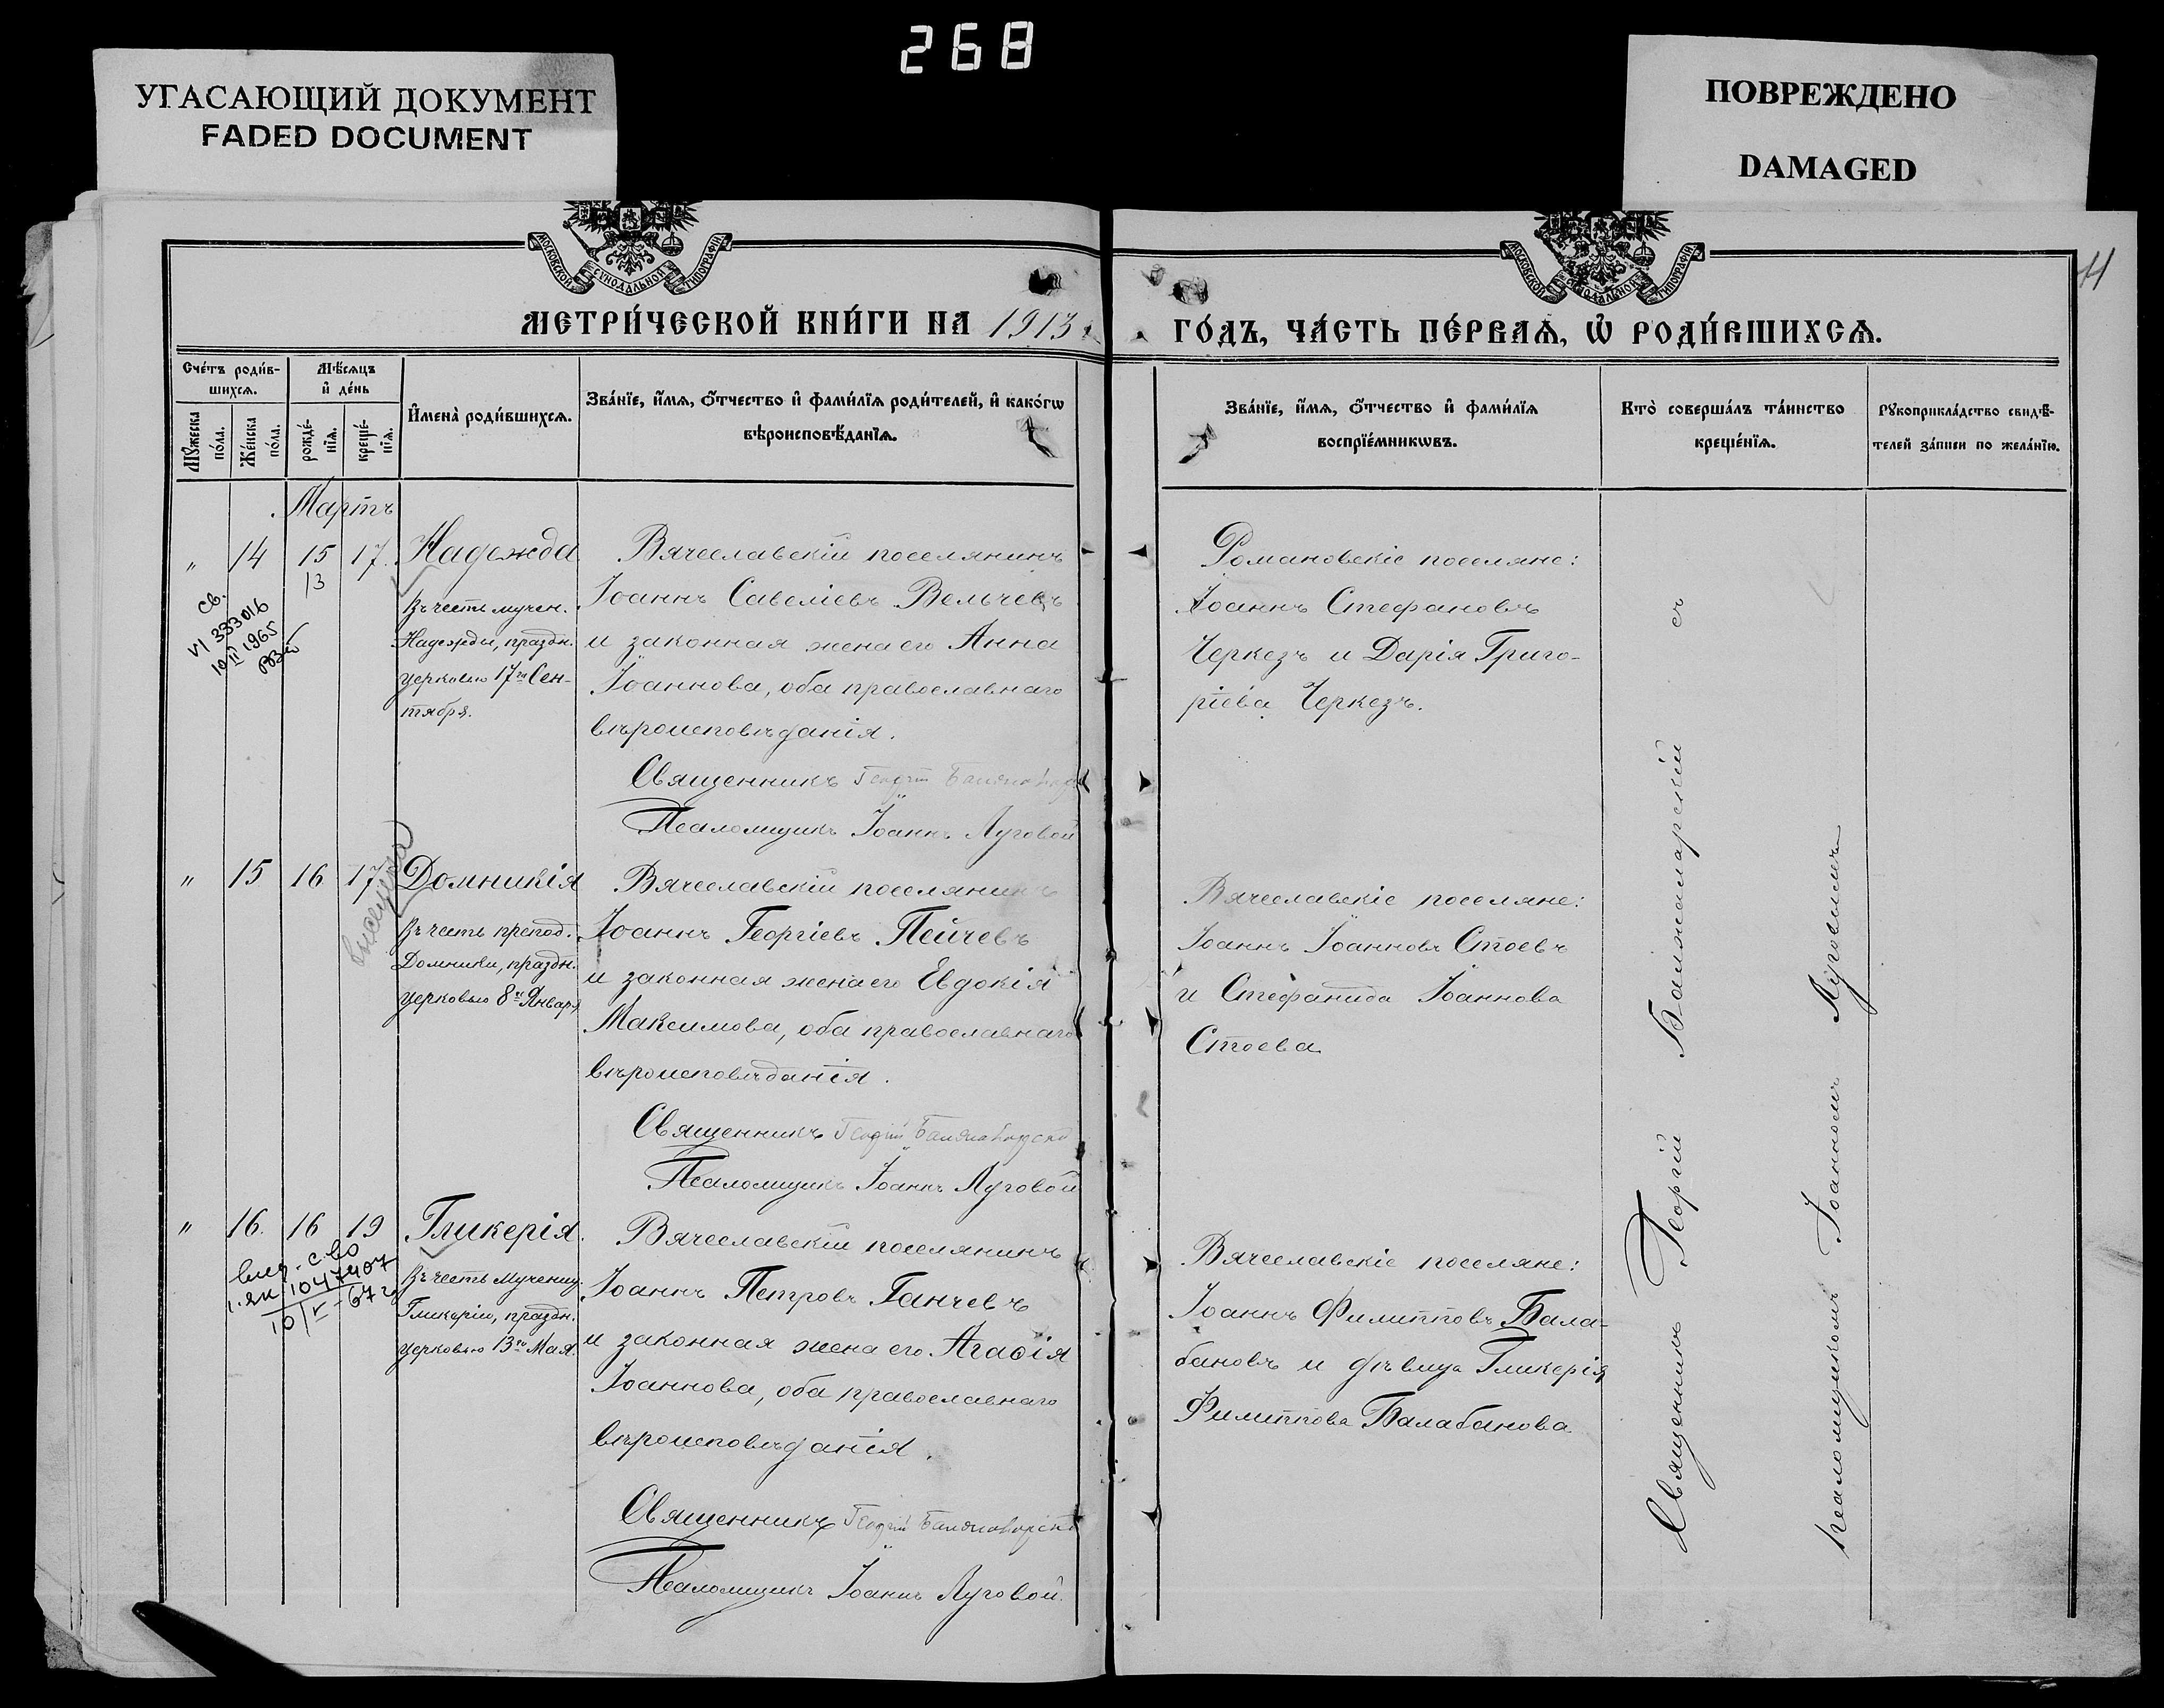 268
УГАСАЮЩИЙ ДОКУМЕНТ
FADED DOCUMENT
ПОВРЕЖДЕНО
DAMAGED
МОСКОВСКОЙ СѴНОДАЛЬНОЙ ТИПОГРАФІИ
МОСКОВСКОЙ СѴНОДАЛЬНОЙ ТИПОГРАФІИ
11
МЕТРИ́ЧЕСКОЙ КНИ́ГИ НА 1913
ГО́ДЪ, ЧА́СТЬ ПЕ́РВАѦ, Ѡ҆ РОДИ́ВШИХСѦ.
Сче́тъ роди́в-
шихсѧ.
Мѣ́сѧцъ
и҆ де́нь
Мꙋ́жеска
по́ла.
Же́нска
по́ла.
рожде́-
нїѧ.
креще́-
нїѧ.
И҆мена̀ роди́вшихсѧ.
Зва́нїе, и҆́мѧ, ѻ҆́тчество и҆ фами́лїѧ роди́телей, и҆ како́гѡ
вѣроисповѣ́данїѧ.
Зва́нїе, и҆́мѧ, ѻ҆́тчество и҆ фами́лїѧ
воспрїе́мникѡвъ.
Кто̀ соверша́лъ та́инство
креще́нїѧ.
Рꙋкоприкла́дство свидѣ́-
телей за́писи по жела́нїю.
Мартъ
" 14 15 17. Надежда
13
Въ честь мучен.
Надежды, праздн.
церковью 17го Сен-
тября.
св.
VI 333016
10 II 1965
Вячеславскій поселянинъ
Іоаннъ Савеліевъ Вельчевъ
и законная жена его Анна
Іоаннова, оба православнаго
вѣроисповѣданія.
Священникъ Георгій
Псаломщикъ Іоаннъ Луговой
Романовскіе поселяне:
Іоаннъ Стефановъ
Черкезъ и Дарія Григо-
ріева Черкезъ.
" 15 16 17 Домникія
Въ честь препод.
Домники, праздн.
церковью 8го Января
Вячеславскій поселянинъ
Іоаннъ Георгіевъ Пейчевъ
и законная жена его Евдокія
Максимова, оба православнаго
вѣроисповѣданія.
Священникъ Георгій
Псаломщикъ Іоаннъ Луговой
Вячеславскіе поселяне:
Іоаннъ Іоанновъ Стоевъ
и Стефанида Іоаннова
Стоева
" 16. 16 19 Гликерія.
Въ честь мучениц.
Гликеріи, праздн.
церковью 13го Мая.
выд. с-во
1047407
10/V-67 г
Вячеславскій поселянинъ
Іоаннъ Петровъ Ганчевъ
и законная жена его Агафія
Іоаннова, оба православнаго
вѣроисповѣданія.
Священникъ Георгій
Псаломщикъ Іоаннъ Луговой.
Вячеславскіе поселяне:
Іоаннъ Филипповъ Бала-
бановъ и дѣвица Гликерія
Филиппова Балабанова.
Священникъ Георгій съ
псаломщикомъ Іоанномъ Луговымъ